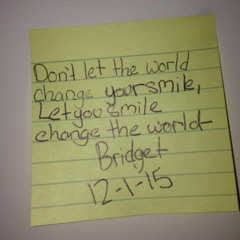 Don't let the world
change your smile,
Let you smile
change the world-
Bridget
12-1-15